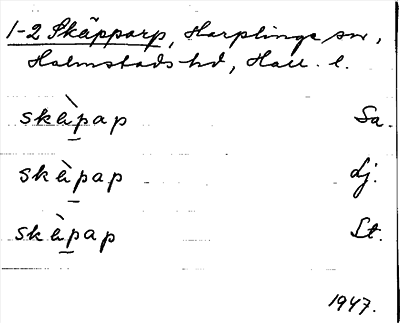 1-2 Skäpparp, Harplinge sn,
Halmstads hd, Hall. l.
skä̀p̱ap Sa.
skä̀p̱ap Lj.
skä̀p̱ap St.
1947.